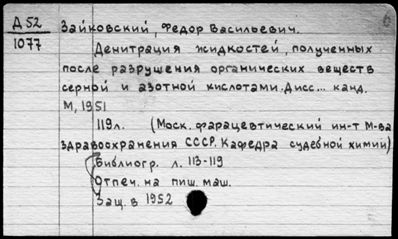 Д 52
1077
Зайковский, Федор Васильевич.
Денитрация жидкостей, полученных
после разрушения органических веществ
серной и азотной кислотами. Дисс... канд.
М, 1951
119л. (Моск. фарацевтический ин-т М-ва
здравоохранения СССР. Кафедра судебной химии)
Библиогр. л. 113-119
Отпеч. на пиш. маш.
Защ. в 1952